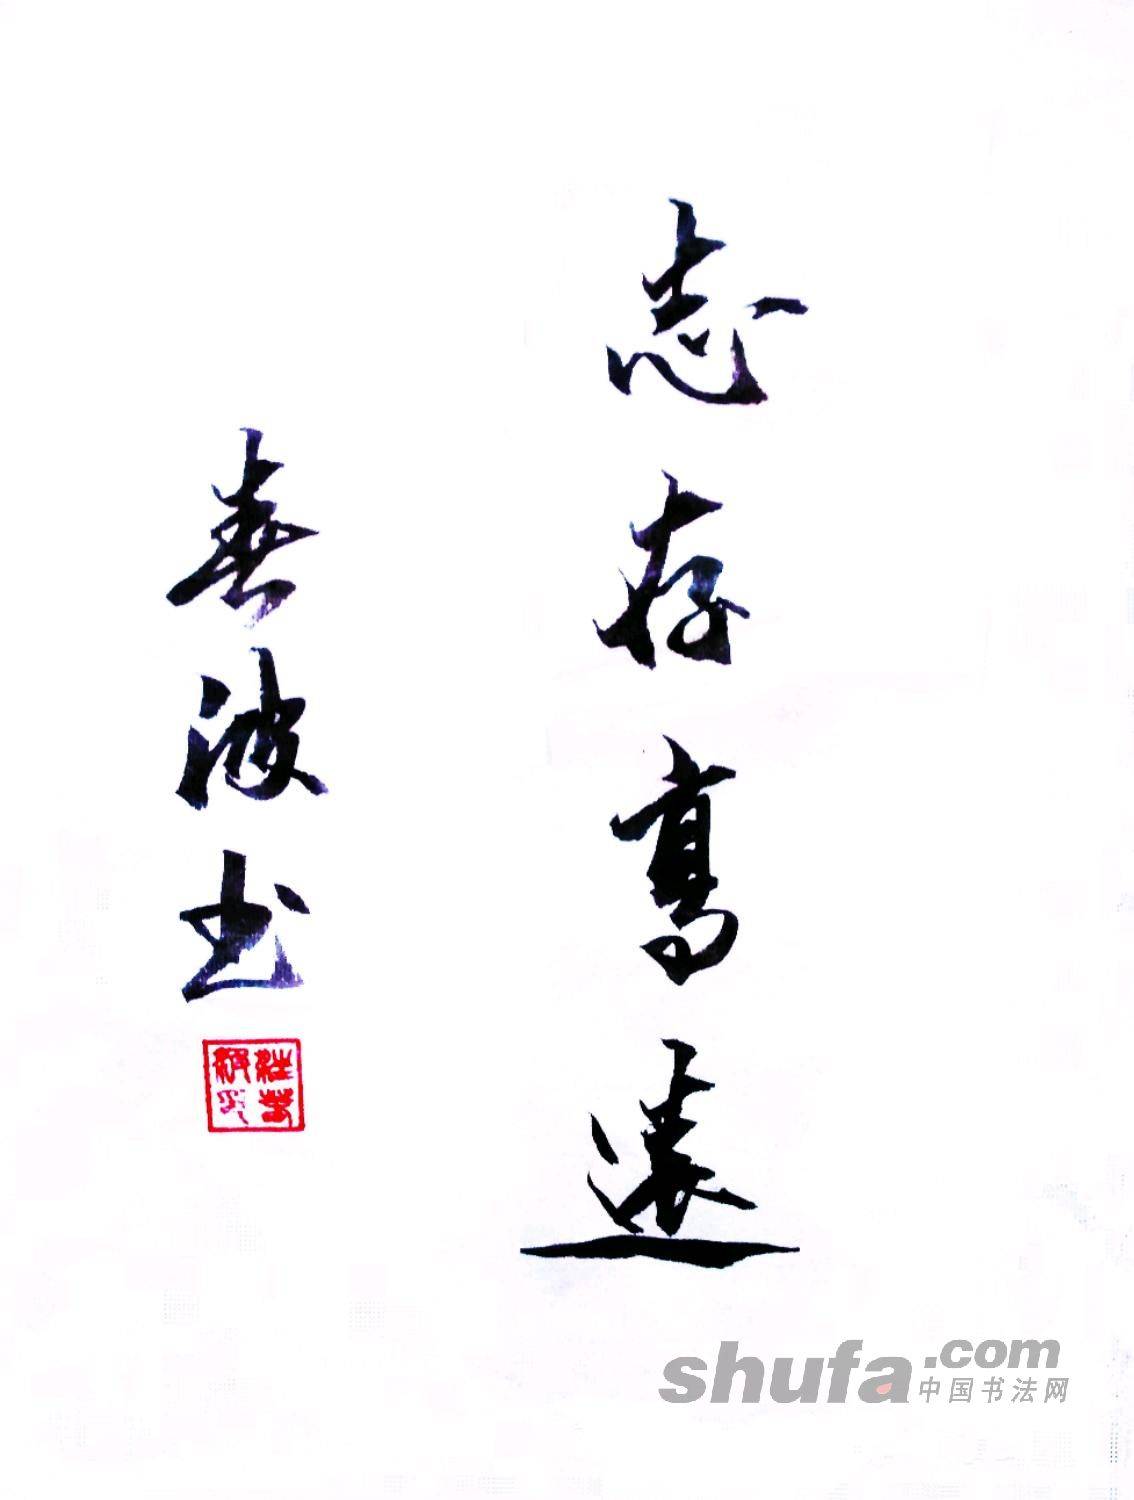 志存高远
春波书
shufa.com
中国书法网